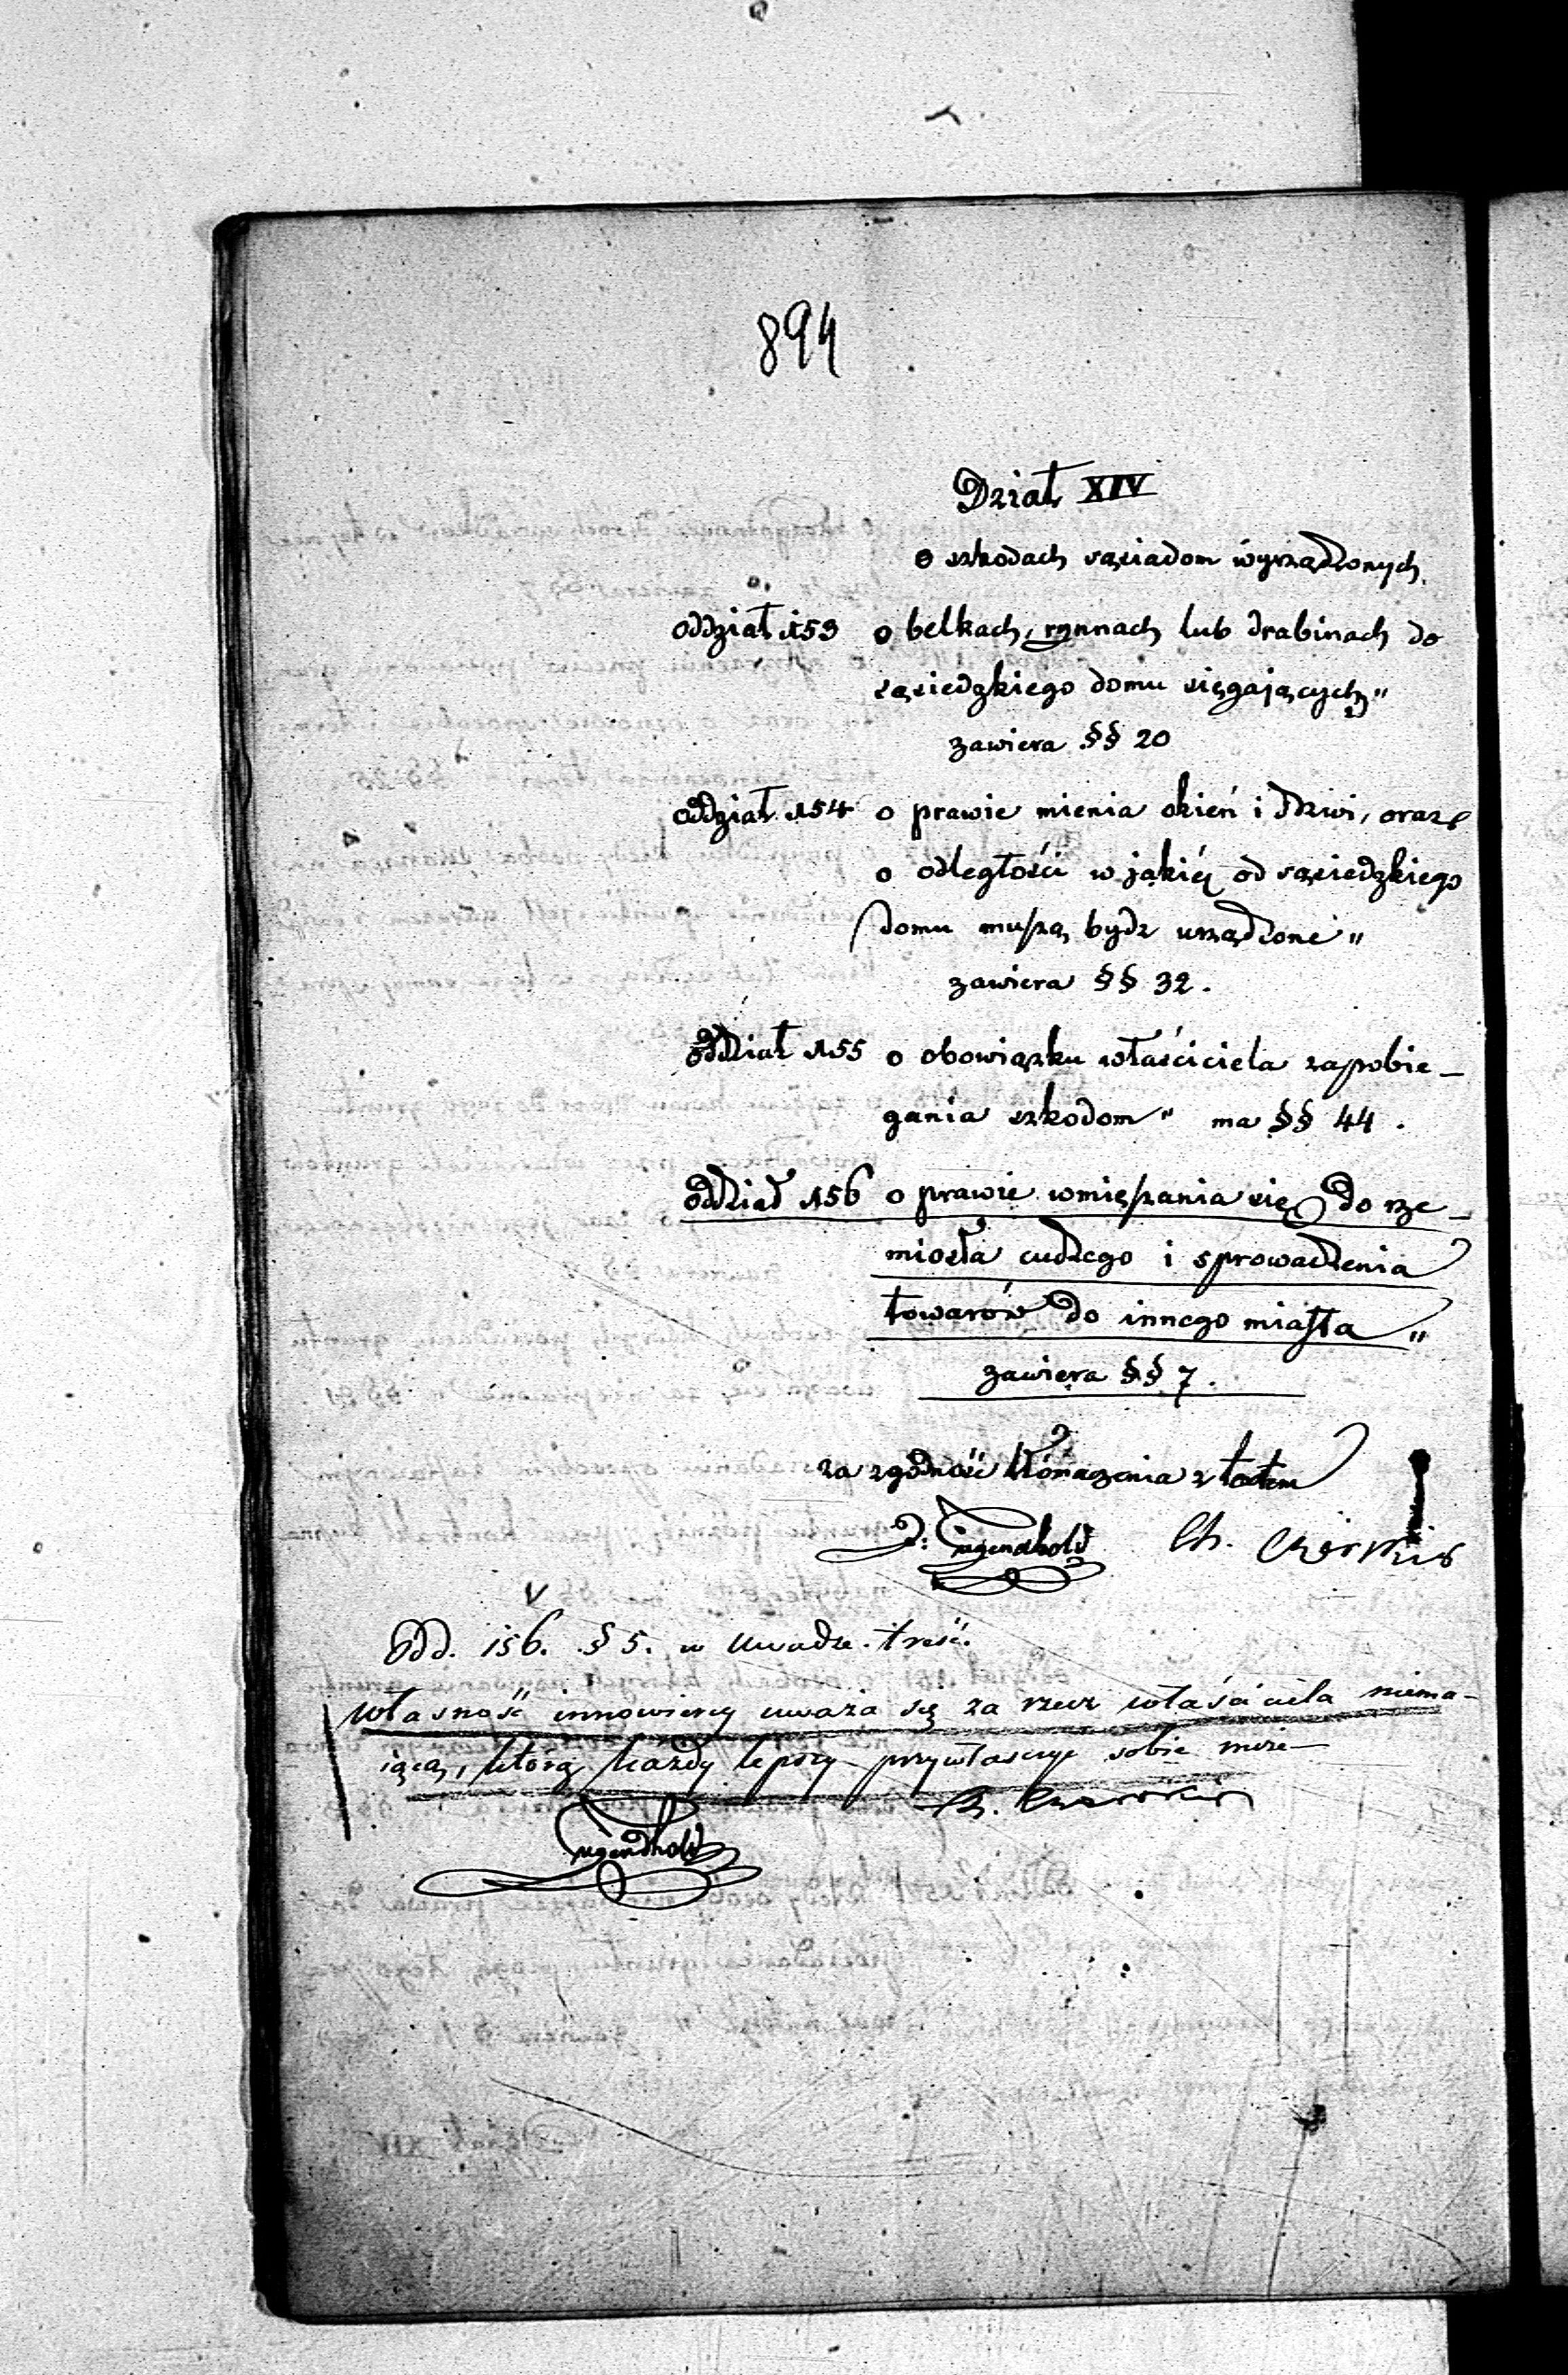 894
Dział XIV
o szkodach sąsiadom wyrządzonych
oddział 153 o belkach, rynnach lub drabinach do
sąsiedzkiego domu sięgających"
zawiera §§ 20
oddział 154 o prawie mienia okien i drzwi, oraz
o odległości w jakiéj od sąsiedzkiego
domu muszą bydz urządzone"
zawiera §§ 32.
oddział 155 o obowiązku właściciela zapobie-
gania szkodom" ma §§ 44.
oddział 156 o prawie wmięszania się do rze-
miosła cudzego i sprowadzenia
towarów do innego miasta"
zawiera §§ 7.
za zgodność tłómaczenia z
J: Tugendhold Ch.
Odd. 156. § 5. w Uwadze. treść.
Własność innowiercy uważa się za rzecz właściciela niema-
iącą, którą każdy lepszy przywłaszczyć sobie może—
Tugendhold